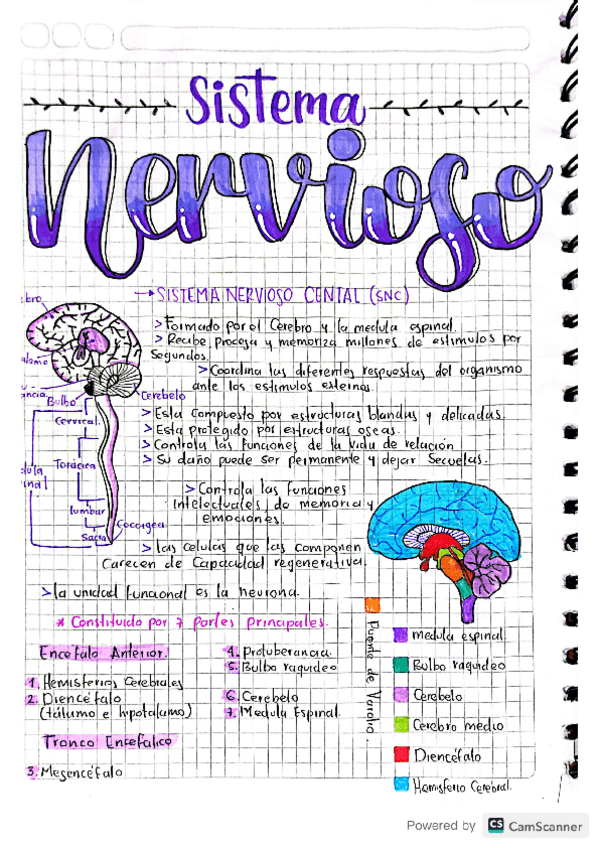 Sistema
nervioso
→ SISTEMA NERVIOSO CENTAL (SNC)
> Formado por el Cerebro y la medula espinal.
> Recibe, procesa y memoriza millones de estimulos por
segundos.
> Coordina las diferentes respuestas del organismo
ante los estimulos externos.
> Esta Compuesto por estructuras blandas y delicadas.
> Esta protegido por estructuras oseas.
> Controla las funciones de la vida de relación
> Su daño puede ser permanente y dejar Secuelas.
> Controla las funciones
intelectuales, de memoria y
emociones.
> las celulas que las componen
Carecen de Capacidad regenerativa.
> la unidad funcional es la neurona.
* Constituido por 7 partes principales.
Encéfalo Anterior.
1. Hemisferios Cerebrales
2. Diencéfalo
(tálamo e hipotalamo)
Tronco Encefálico
3. Mesencéfalo
4. Protuberancia.
5. Bulbo raquideo
6. Cerebelo
7. Medula Espinal.
bro
alamo
ancia
Bulbo
Cerebelo
Cervical.
Torácica
dula
inal
lumbar
Coccigea
Sacra
Puente de Varolio.
medula espinal
Bulbo raquideo
Cerebelo
Cerebro medio
Diencéfalo
Hemisferio Cerebral.
Powered by CS CamScanner